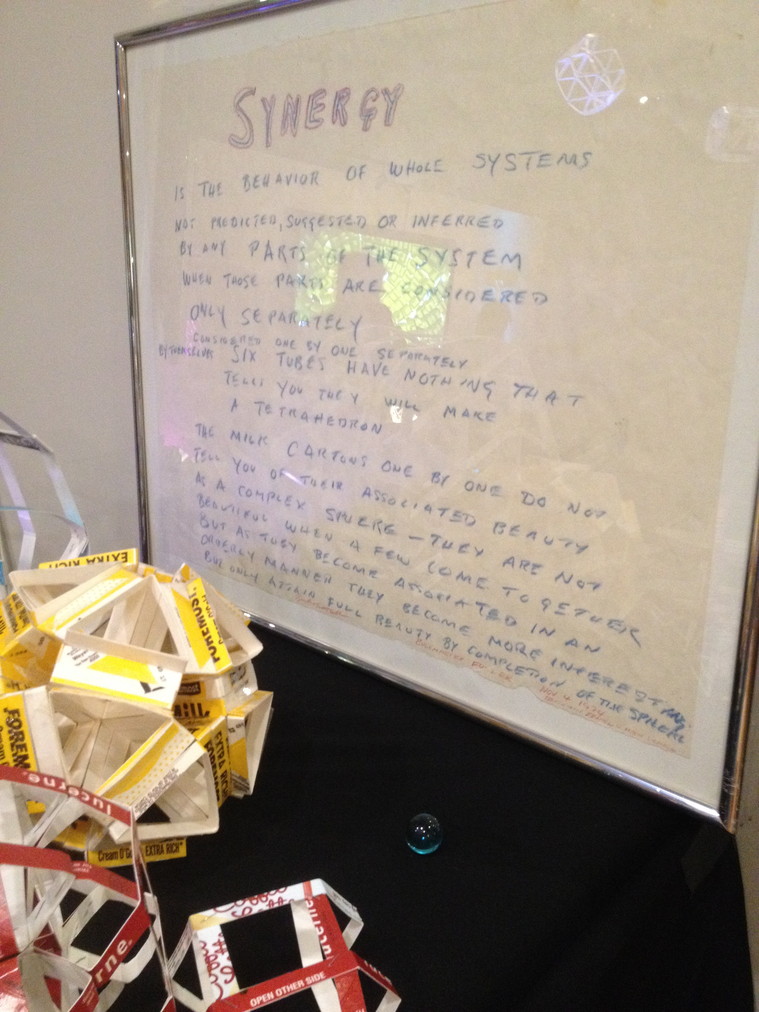 SYNERGY
IS THE BEHAVIOR OF WHOLE SYSTEMS
NOT PREDICTED, SUGGESTED OR INFERRED
BY ANY PARTS OF THE SYSTEM
WHEN THOSE PARTS ARE CONSIDERED
ONLY SEPARATELY
CONSIDERED ONE BY ONE SEPARATELY
BY THEMSELVES SIX TUBES HAVE NOTHING THAT
TELLS YOU THEY WILL MAKE
A TETRAHEDRON
THE MILK CARTONS ONE BY ONE DO NOT
TELL YOU OF THEIR ASSOCIATED BEAUTY
AS A COMPLEX SPHERE – THEY ARE NOT
BEAUTIFUL WHEN A FEW COME TOGETHER
BUT AS THEY BECOME ASSOCIATED IN AN
ORDERLY MANNER THEY BECOME MORE INTERESTING
BUT ONLY ATTAIN FULL BEAUTY BY COMPLETION OF THE SPHERE
EXTRA RICH
FOREMOST
FOREM
EXTRA RICH
Cream O'
EXTRA RICH
lucerne.
rne.
OPEN OTHER SIDE